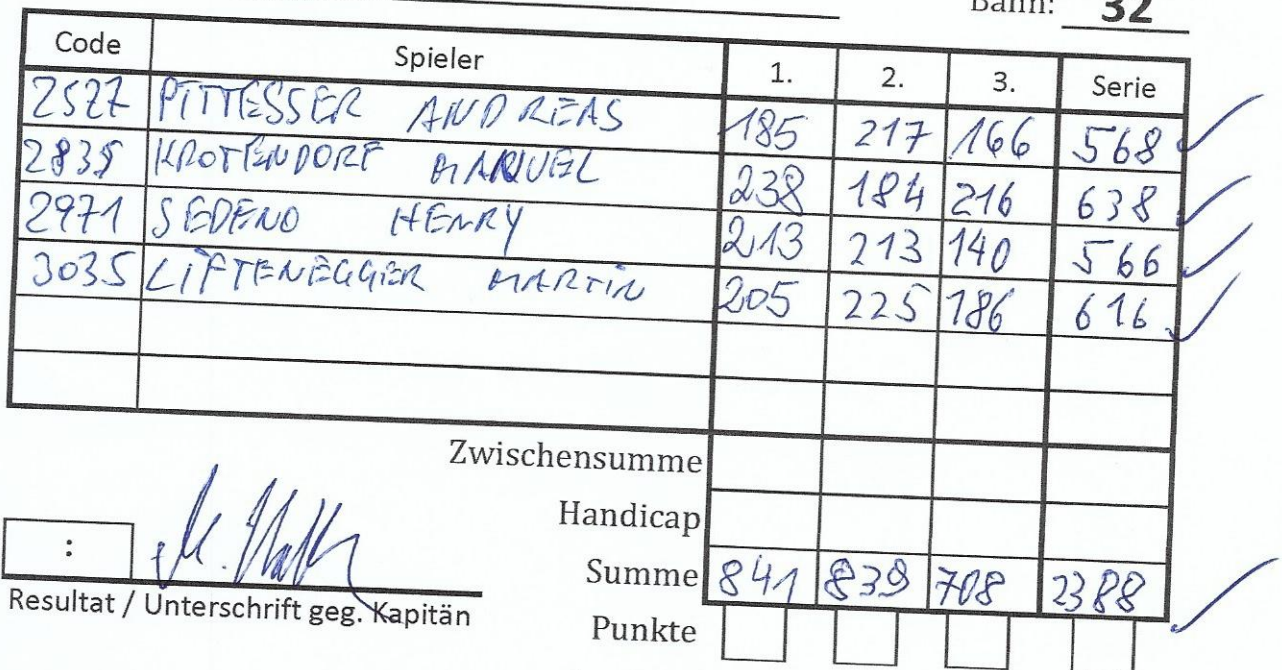 Bahn: 32
Code Spieler 1. 2. 3. Serie
2527 PITTESSER ANDREAS 185 217 166 568
2839 KROTENDORF MANUEL 238 184 216 638
2971 SEDENO HENRY 213 213 140 566
3035 LIFTENEGGER MARTIN 205 225 186 616
Zwischensumme
Handicap
:
Summe 841 839 708 2388
Resultat / Unterschrift geg. Kapitän
Punkte